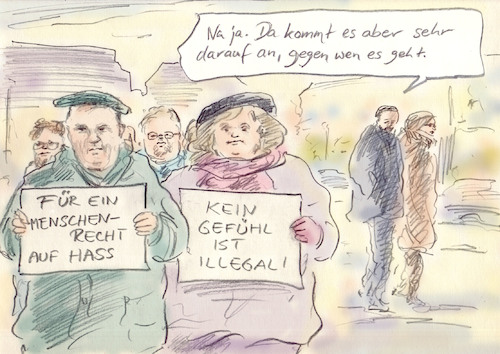 Na ja. Da kommt es aber sehr
darauf an, gegen wen es geht.
FÜR EIN
MENSCHEN-
RECHT
AUF HASS
KEIN
GEFÜHL
IST
ILLEGAL!